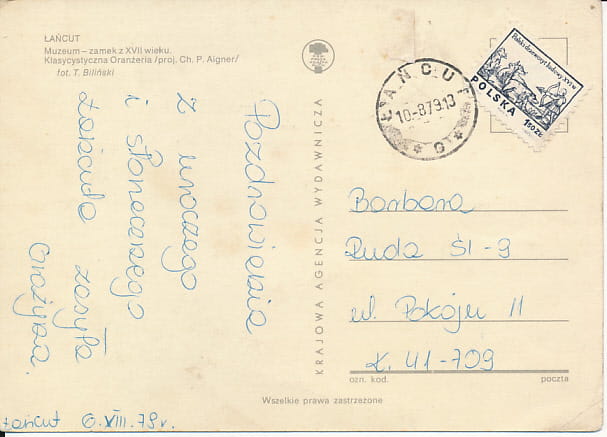 ŁAŃCUT
Muzeum – zamek z XVII wieku.
Klasycystyczna Oranżeria /proj. Ch. P. Aigner/
fot. T. Biliński
Pozdrowienia
z uroczego
i słonecznego
Łańcuta zasyła
Grażyna.
Łańcut 6.VIII.79r.
KRAJOWA AGENCJA WYDAWNICZA
ŁAŃCUT
10-8.79.13
POLSKA
150 ZŁ
Barbara
Ruda Śl-9
ul. Pokoju 11
k. 41-709
ozn. kod. poczta
Wszelkie prawa zastrzeżone